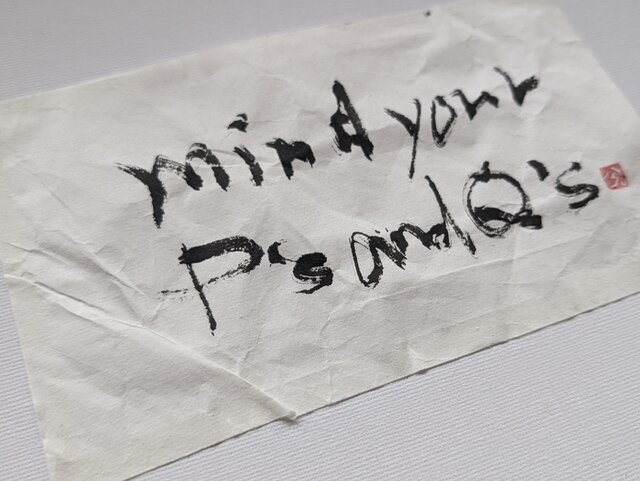 mind your
P's and Q's